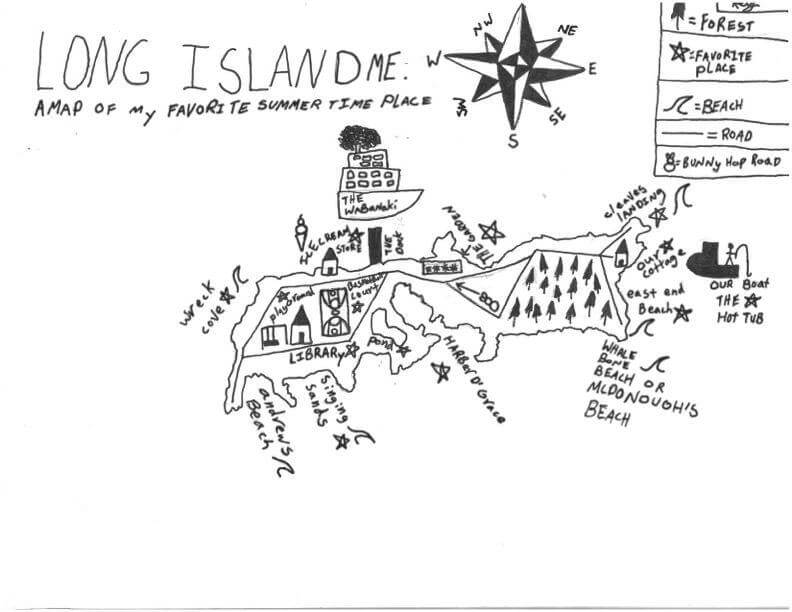 LONG ISLAND ME.
A MAP OF my FAVORITE SUMMER TIME PLACE
NW
NE
W
E
SW
SE
S
Key
= FOREST
=FAVORITE
PLACE
=BEACH
= ROAD
=BUNNY HOP ROAD
THE
WABANAKI
ICE CREAM
STORE
THE
Dock
THE GARDEN
cleaves
LANDING
our
cottage
OUR Boat
THE
HOT TUB
east end
Beach
WHALE
BONE
BEACH OR
McDONOUGH'S
BEACH
wreck
cove
playground
Basketball
court
LIBRARY
Pond
HARBOR D'Grace
singing
sands
andrews
Beach